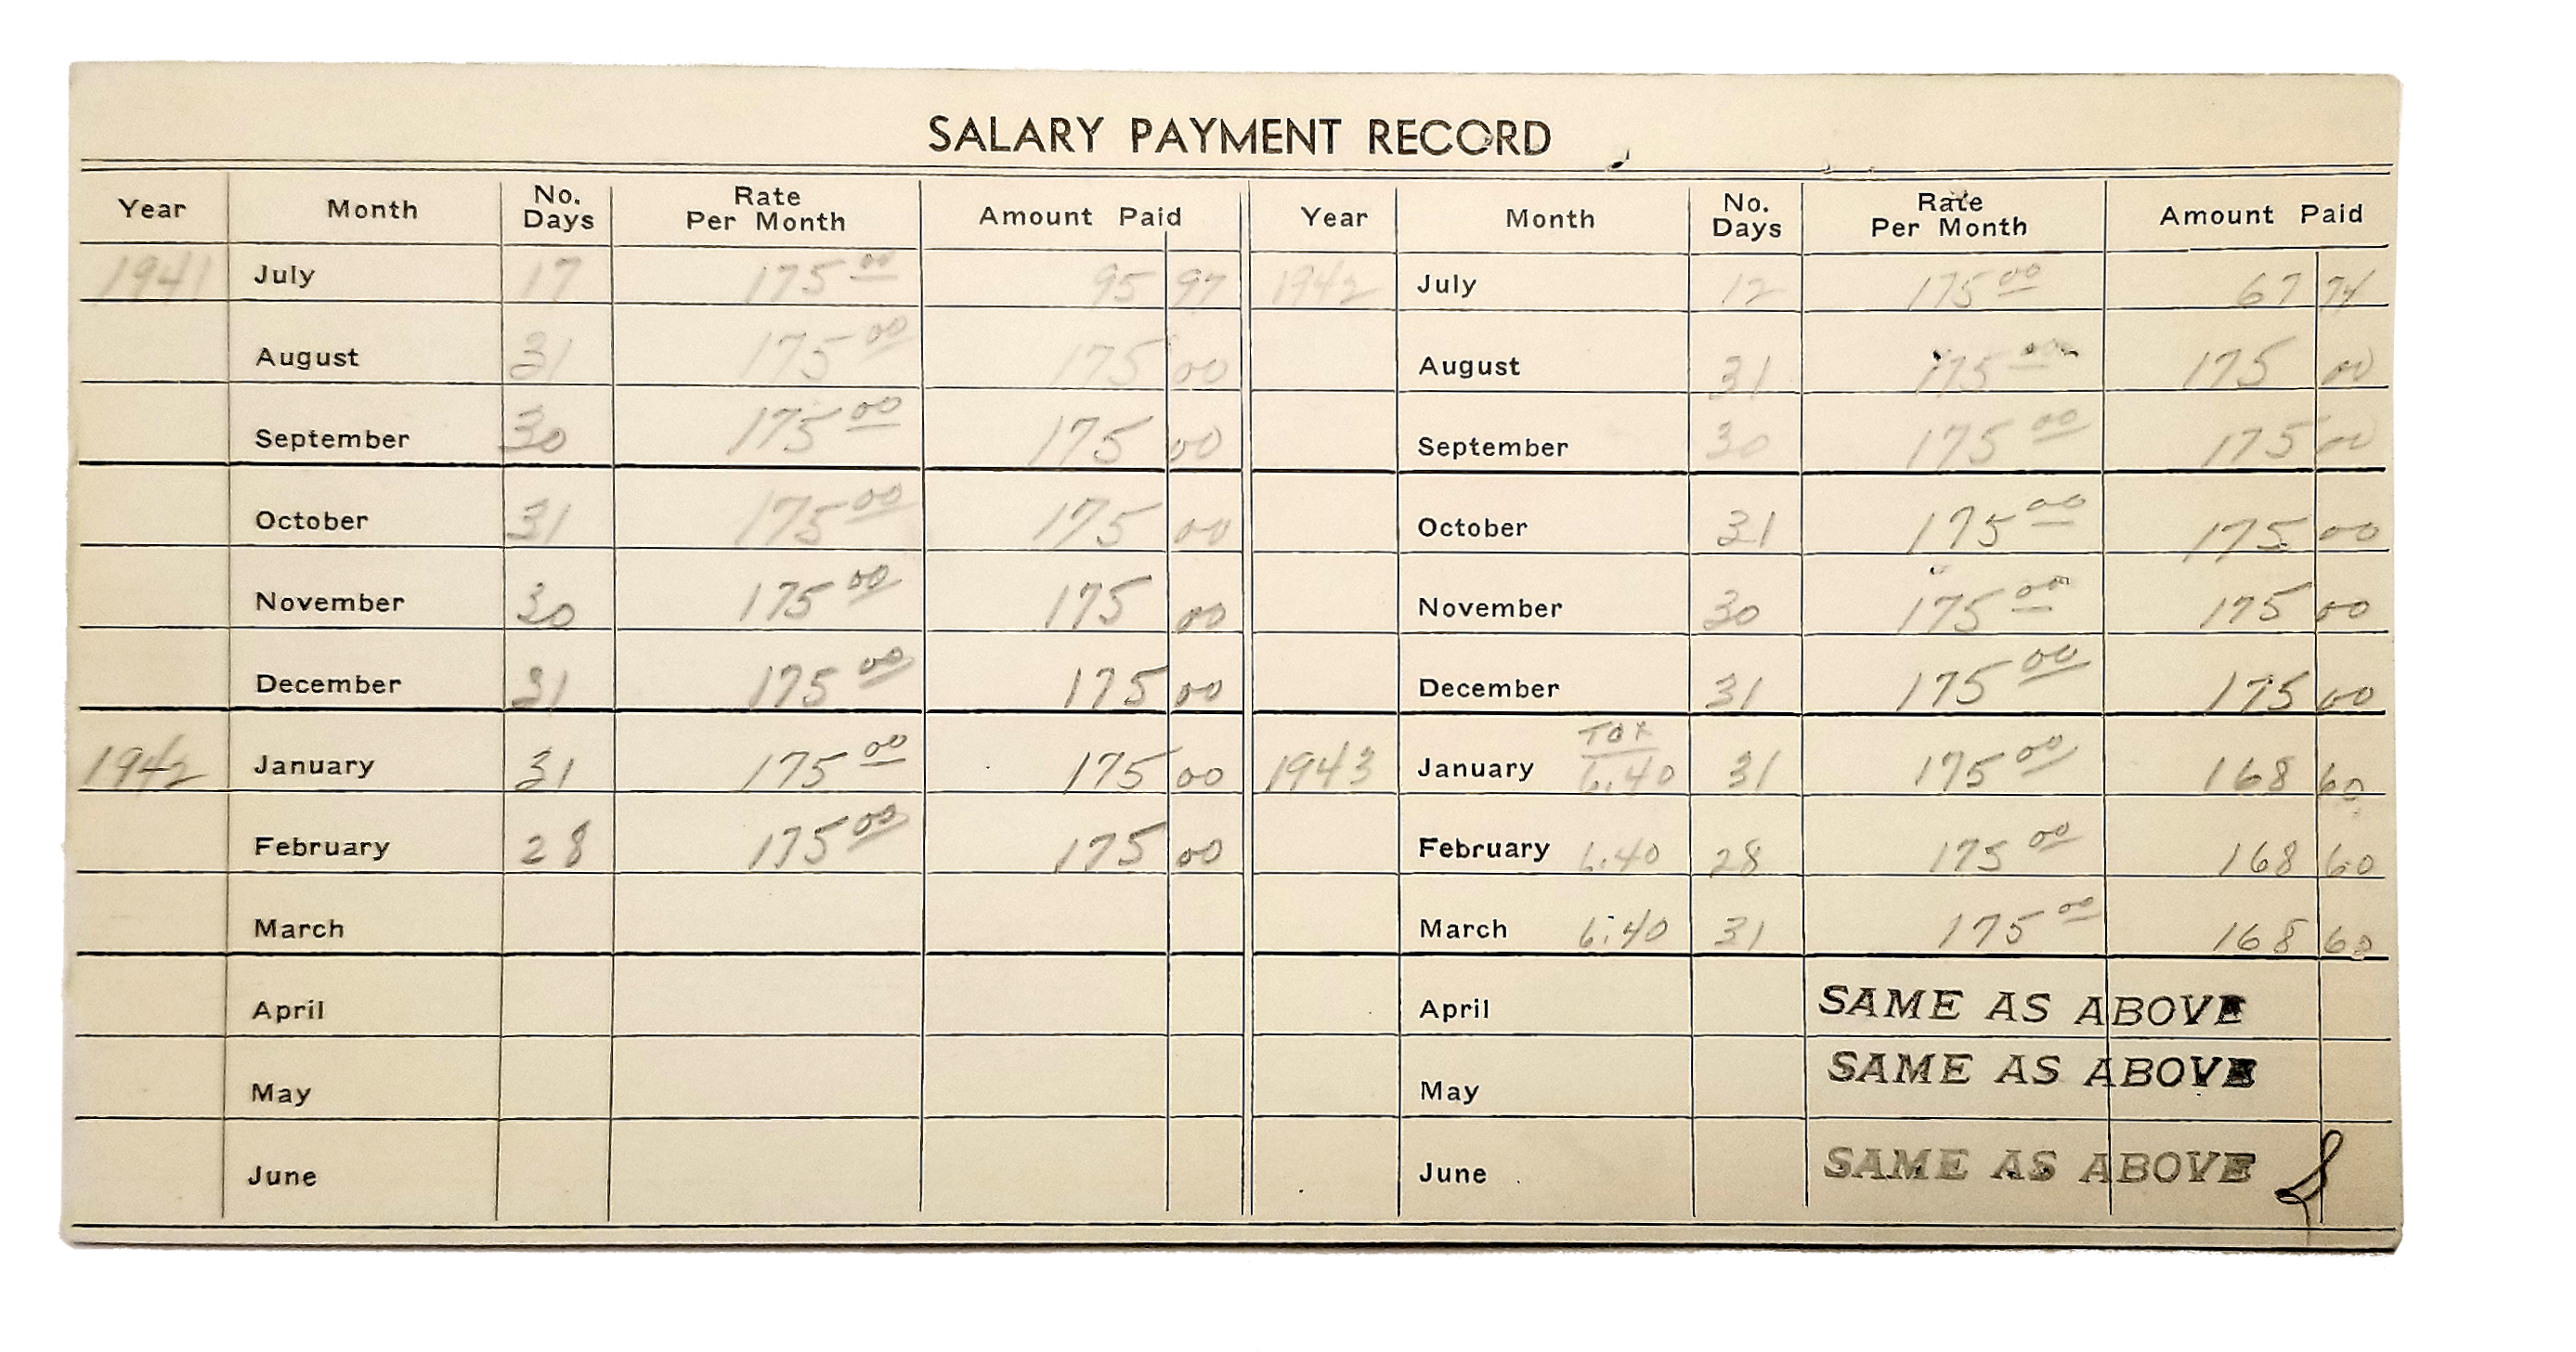 SALARY PAYMENT RECORD
Year Month No. Days Rate Per Month Amount Paid Year Month No. Days Rate Per Month Amount Paid
1941 July 17 175 00 95 97 1942 July 12 175 00 67 74
August 31 175 00 175 00 August 31 175 00 175 00
September 30 175 00 175 00 September 30 175 00 175 00
October 31 175 00 175 00 October 31 175 00 175 00
November 30 175 00 175 00 November 30 175 00 175 00
December 31 175 00 175 00 December 31 175 00 175 00
TAX
1942 January 31 175 00 175 00 1943 January 6.40 31 175 00 168 60
February 28 175 00 175 00 February 6.40 28 175 00 168 60
March March 6.40 31 175 00 168 60
April April SAME AS ABOVE
May May SAME AS ABOVE
June June SAME AS ABOVE